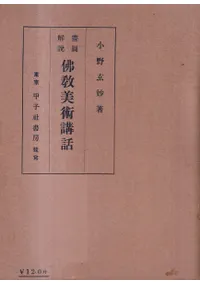 小野玄妙著
圖録
解説
佛敎美術講話
東京 甲子社書房 發兌
¥12.00